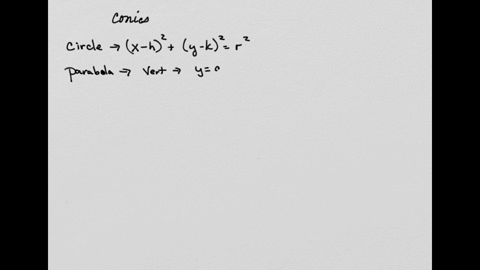 Conics
Circle → (x-h)² + (y-k)² = r²
parabola → Vert → y=